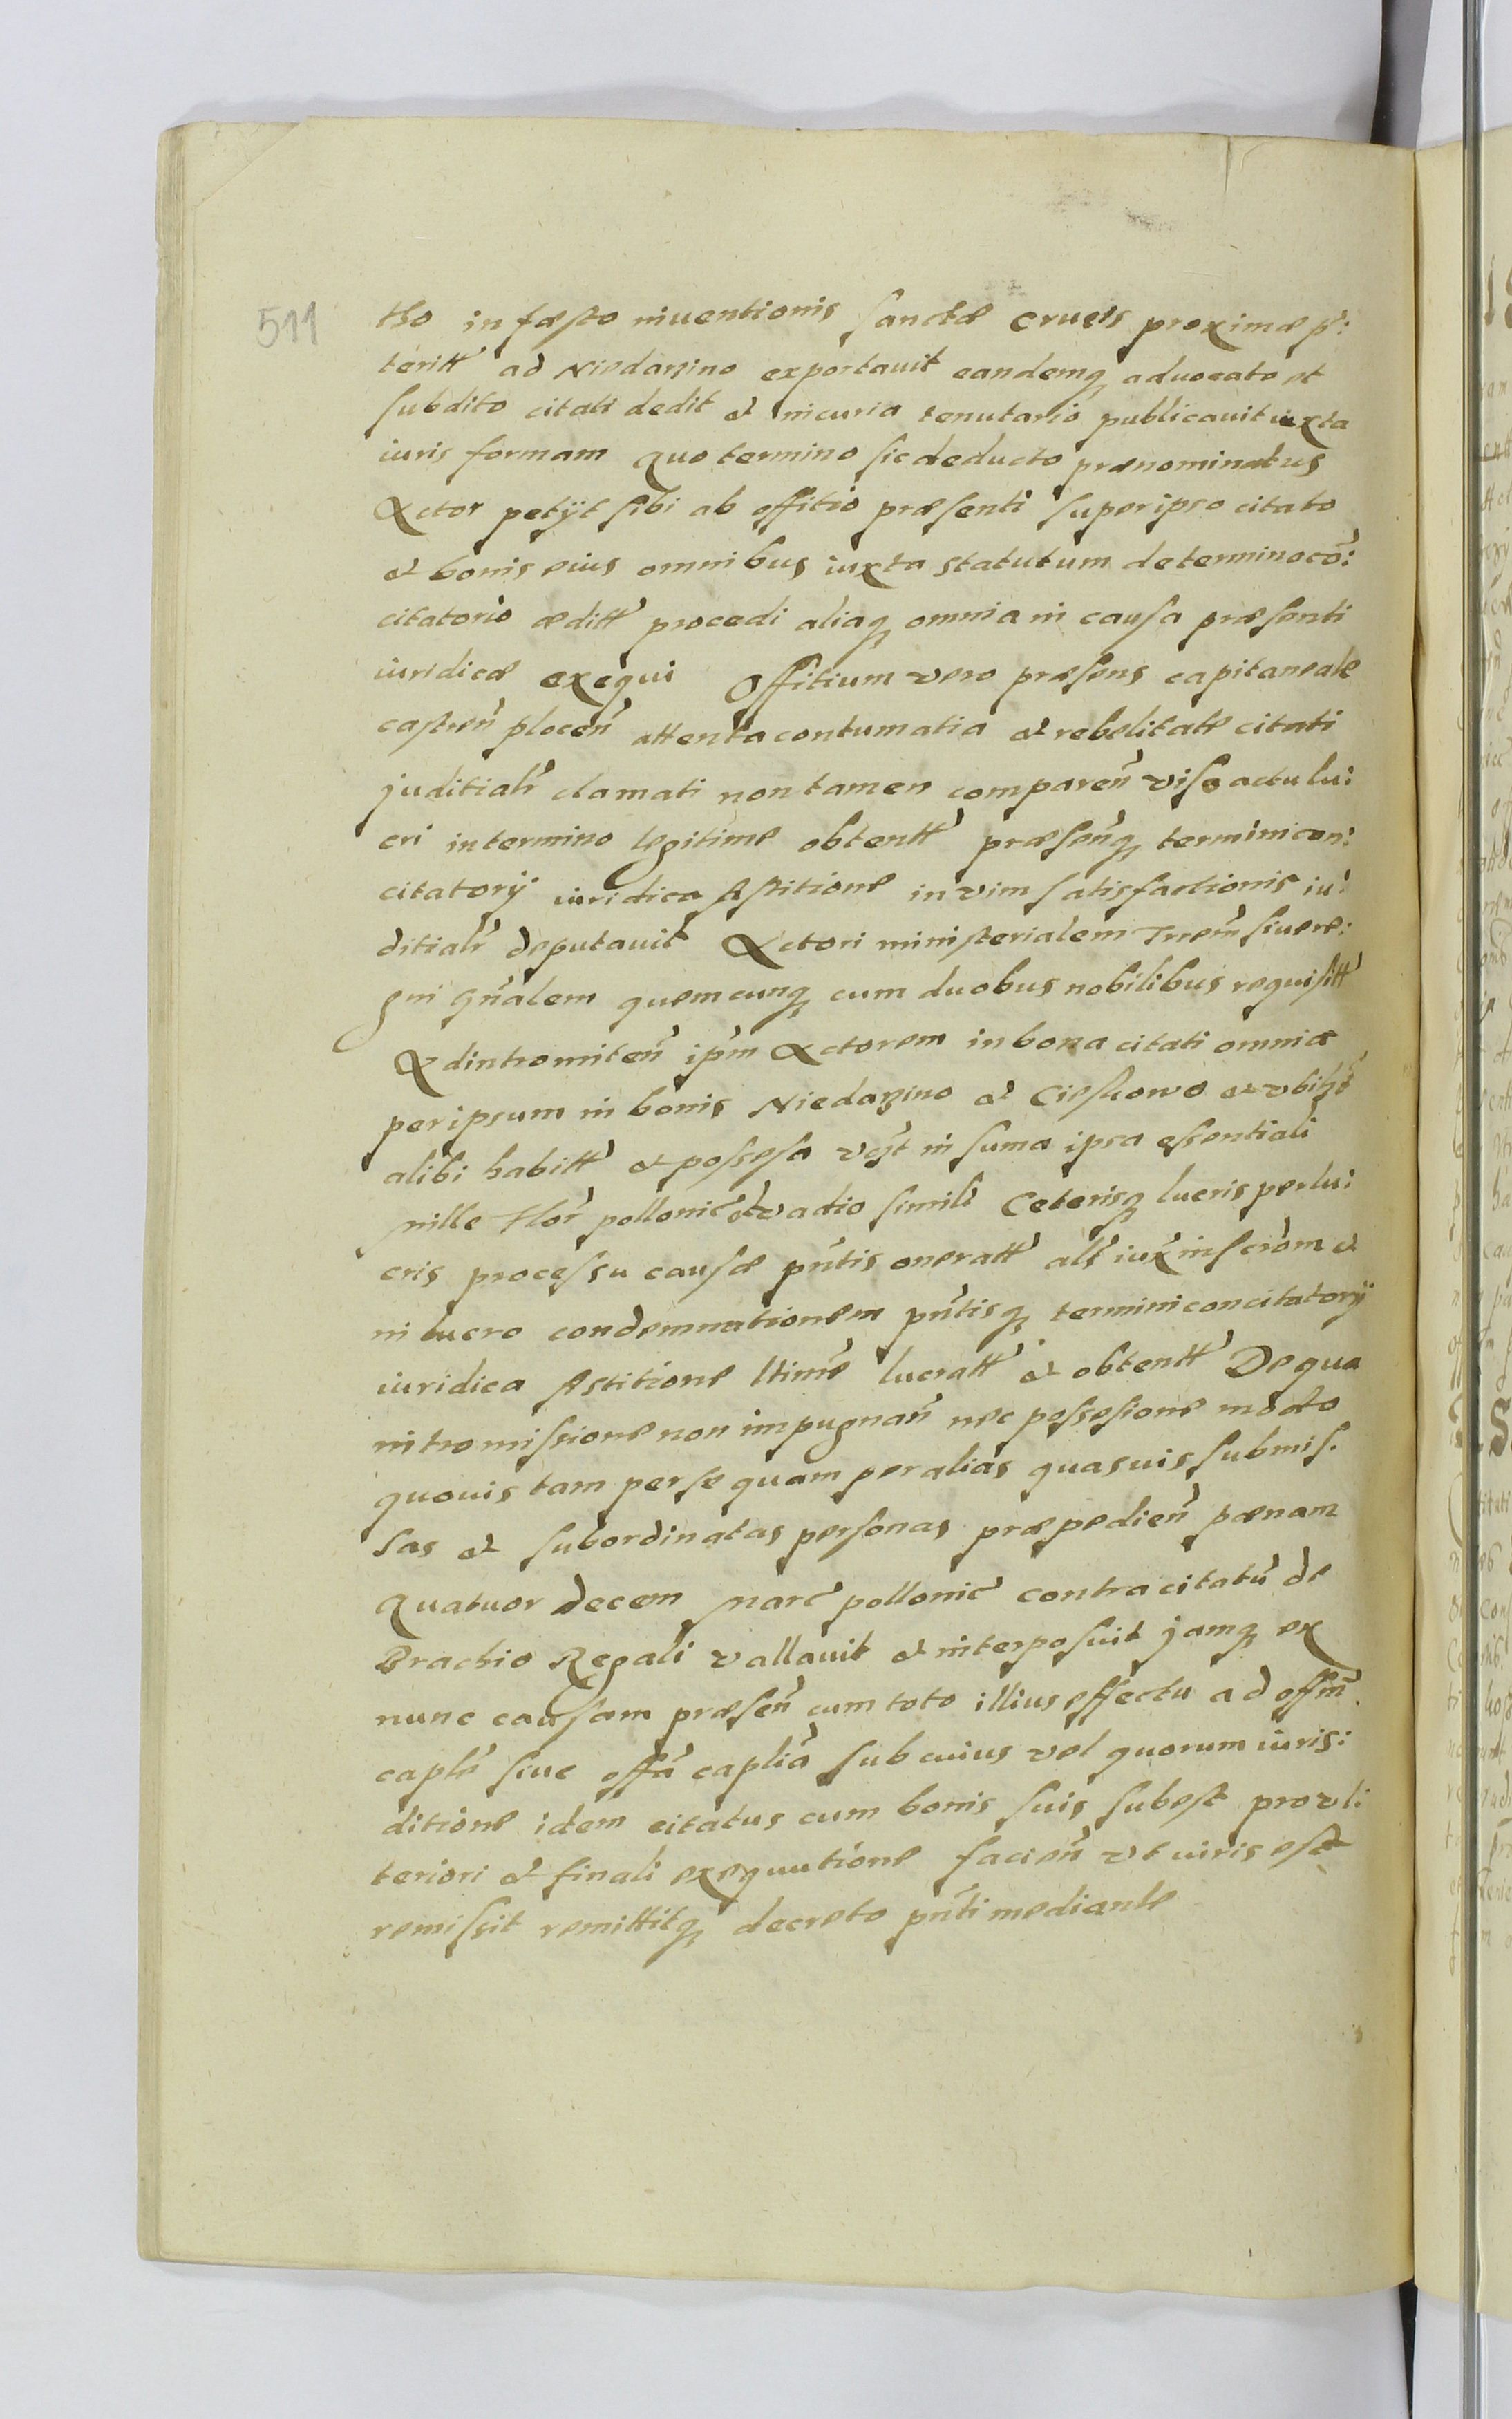 511
tho in fæsto inuentionis sanctæ crucis proximæ p̃:
teritt̃ ad Niedarzino exportauit eandemq aduocato et
subdito citati dedit et in curia tenutario publicauit iuxta
iuris formam quo termino sic deducto prænominatus
Actor petÿt sibi ab offitio præsenti super ipso citato
et bonis eius omnibus iuxta statutum de termino cõ:
citatorio æditt̃ procedi aliaq omnia in causa præsenti
iuridicæ exequi Offitium vero præsens capitaneale
castreñ ploceñ attenta contumatia et rebelitate citati
juditialr̃ clamati non tamen compareñ viso actu lu:
cri in termino legitime obtentt̃ præseñq termini con:
citatorÿ iuridica Astitione in vim satisfactionis iu:
ditialr̃ deputauit Actori ministerialem Trrem̃ siue re:
gni gñalem quemcunq cum duobus nobilibus requisitt̃
Ad intromiteñ ip̃m Actorem in bona citati omnia
per ipsum in bonis Niedarzino et Ciesluowo et vbilĩs
alibi habitt̃ et possesa vt̃ in suma ipsa essentiali
mille Flor̃ pollonic̃ et vadio simili Ceterisq lucris per lu:
cris processu causæ pñtis oneratt̃ als̃ iux̃ inscrõm et
in lucro condemnationem pñtisq termini concitatorÿ
iuridica Astitione ltimẽ lucratt̃ et obtentt̃ De qua
intromissione non impugnañ nec possesione modo
quouis tam per se quam per alias quasuis submis.
sas et subordinatas personas præpedieñ pænam
quatuor decem marc̃ pollonic̃ contra citatũ de
Brachio Regali vallauit et interposuit jamq ex
nunc causam præseñ cum toto illius effectu ad offm̃
caplẽ siue offã capliã sub cuius vel quorum iuris:
ditione idem citatus cum bonis suis subest pro vl:
teriori et finali exequutione facieñ vt iuris est
remissit remittitq decreto pñti mediante